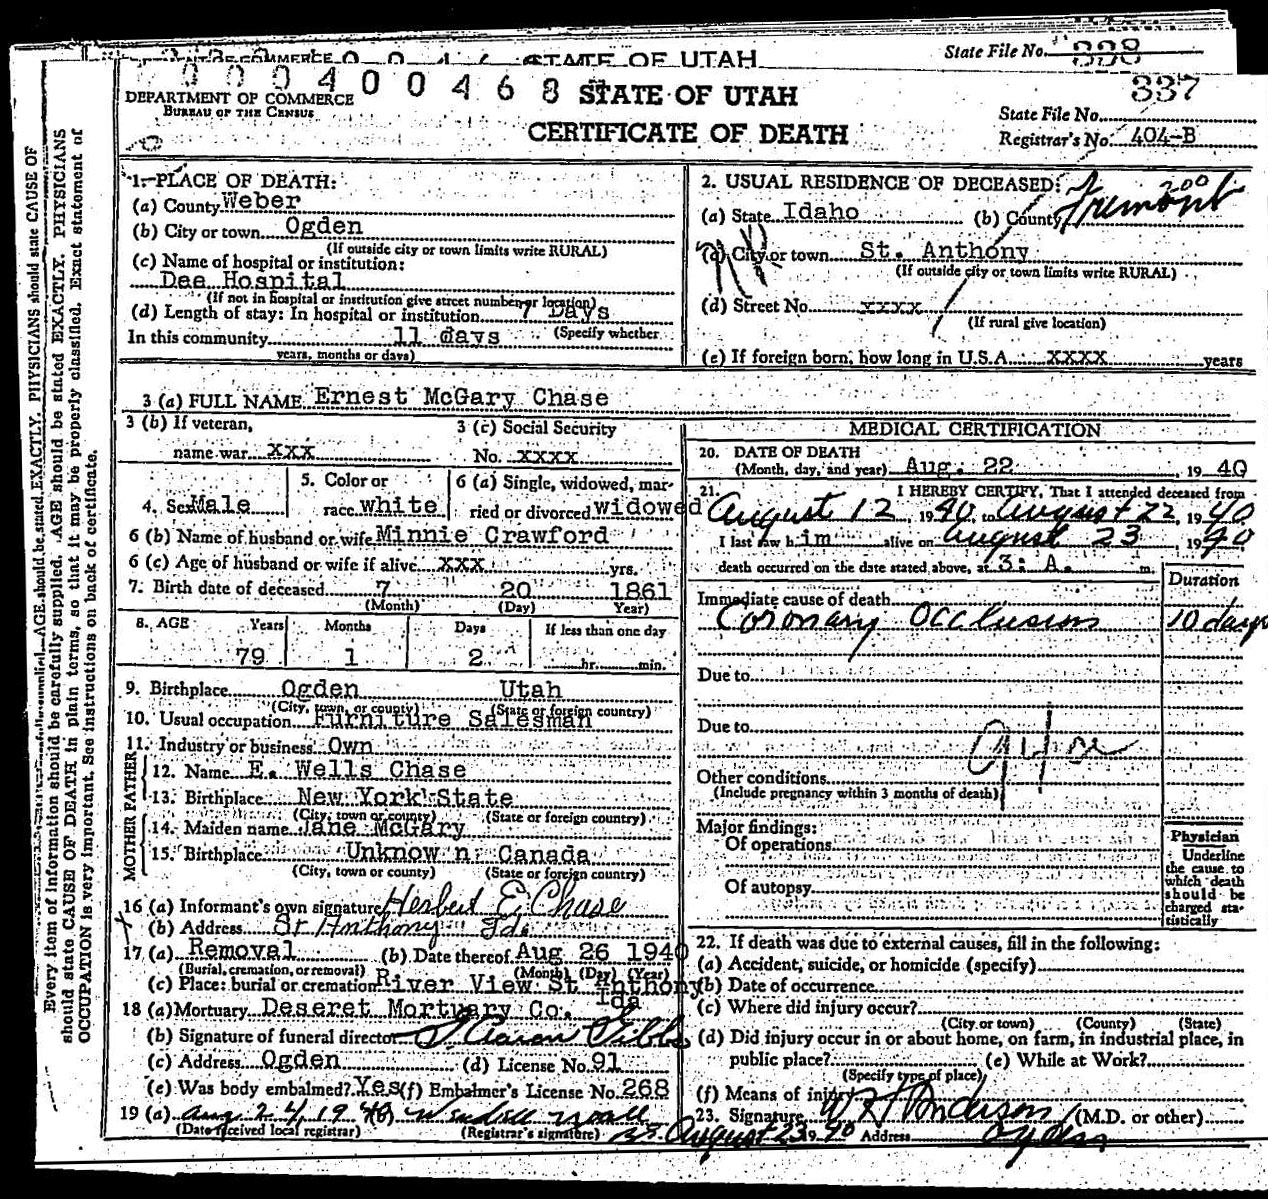 STATE OF UTAH
State File No. 338
0 0 0 4 0 0 4 6 8
STATE OF UTAH
337
DEPARTMENT OF COMMERCE
BUREAU OF THE CENSUS
CERTIFICATE OF DEATH
State File No.
Registrar's No. 404-B
Every item of information should be carefully supplied. AGE should be stated EXACTLY. PHYSICIANS
should state CAUSE OF DEATH in plain terms, so that it may be properly classified. Exact statement of
OCCUPATION is very important. See instructions on back of certificate.
1. PLACE OF DEATH:
(a) County Weber
(b) City or town Ogden
(If outside city or town limits write RURAL)
(c) Name of hospital or institution:
Dee Hospital
(If not in hospital or institution give street number or location)
(d) Length of stay: In hospital or institution 7 Days
In this community 11 days (Specify whether
years, months or days)
2. USUAL RESIDENCE OF DECEASED: 200
(a) State Idaho (b) County Fremont
(c) City or town St. Anthony
(If outside city or town limits write RURAL)
(d) Street No. xxxx
(If rural give location)
(e) If foreign born, how long in U.S.A. xxxx years
3 (a) FULL NAME Ernest McGary Chase
3 (b) If veteran, name war xxx
3 (c) Social Security No. xxxx
4. Sex Male
5. Color or race white
6 (a) Single, widowed, married or divorced widowed
6 (b) Name of husband or wife Minnie Crawford
6 (c) Age of husband or wife if alive xxx yrs.
7. Birth date of deceased 7 20 1861
(Month) (Day) Year)
8. AGE Years Months Days If less than one day
79 1 2 hr. min.
9. Birthplace Ogden Utah
(City, town, or county) (State or foreign country)
10. Usual occupation Furniture Salesman
11. Industry or business Own
FATHER
12. Name E. Wells Chase
13. Birthplace New York State
(City, town or county) (State or foreign country)
MOTHER
14. Maiden name Jane McGary
15. Birthplace Unknown Canada
(City, town or county) (State or foreign country)
16 (a) Informant's own signature Herbert E. Chase
(b) Address St Anthony Ida
17 (a) Removal (b) Date thereof Aug 26 1940
(Burial, cremation, or removal) (Month) (Day) (Year)
(c) Place: burial or cremation River View St Anthony
Ida
18 (a) Mortuary Deseret Mortuary Co.
(b) Signature of funeral director
(c) Address Ogden (d) License No. 91
(e) Was body embalmed? Yes (f) Embalmer's License No. 268
19 (a) Aug 24, 1940
(Date received local registrar) (Registrar's signature)
MEDICAL CERTIFICATION
20. DATE OF DEATH
(Month, day, and year) Aug. 22 19 40
21. I HEREBY CERTIFY, That I attended deceased from
August 12, 1940, to August 22, 1940
I last saw him alive on August 23, 1940
death occurred on the date stated above, at 3: A. m.
Duration
Immediate cause of death
Coronary Occlusion 10 days
Due to
Due to
94a
Other conditions
(Include pregnancy within 3 months of death)
Major findings:
Of operations
Of autopsy
Physician
Underline
the cause to
which death
should be
charged sta-
tistically
22. If death was due to external causes, fill in the following:
(a) Accident, suicide, or homicide (specify)
(b) Date of occurrence
(c) Where did injury occur?
(City or town) (County) (State)
(d) Did injury occur in or about home, on farm, in industrial place, in
public place? (e) While at Work?
(Specify type of place)
(f) Means of injury
23. Signature Anderson (M.D. or other)
August 23 1940 Address Ogden